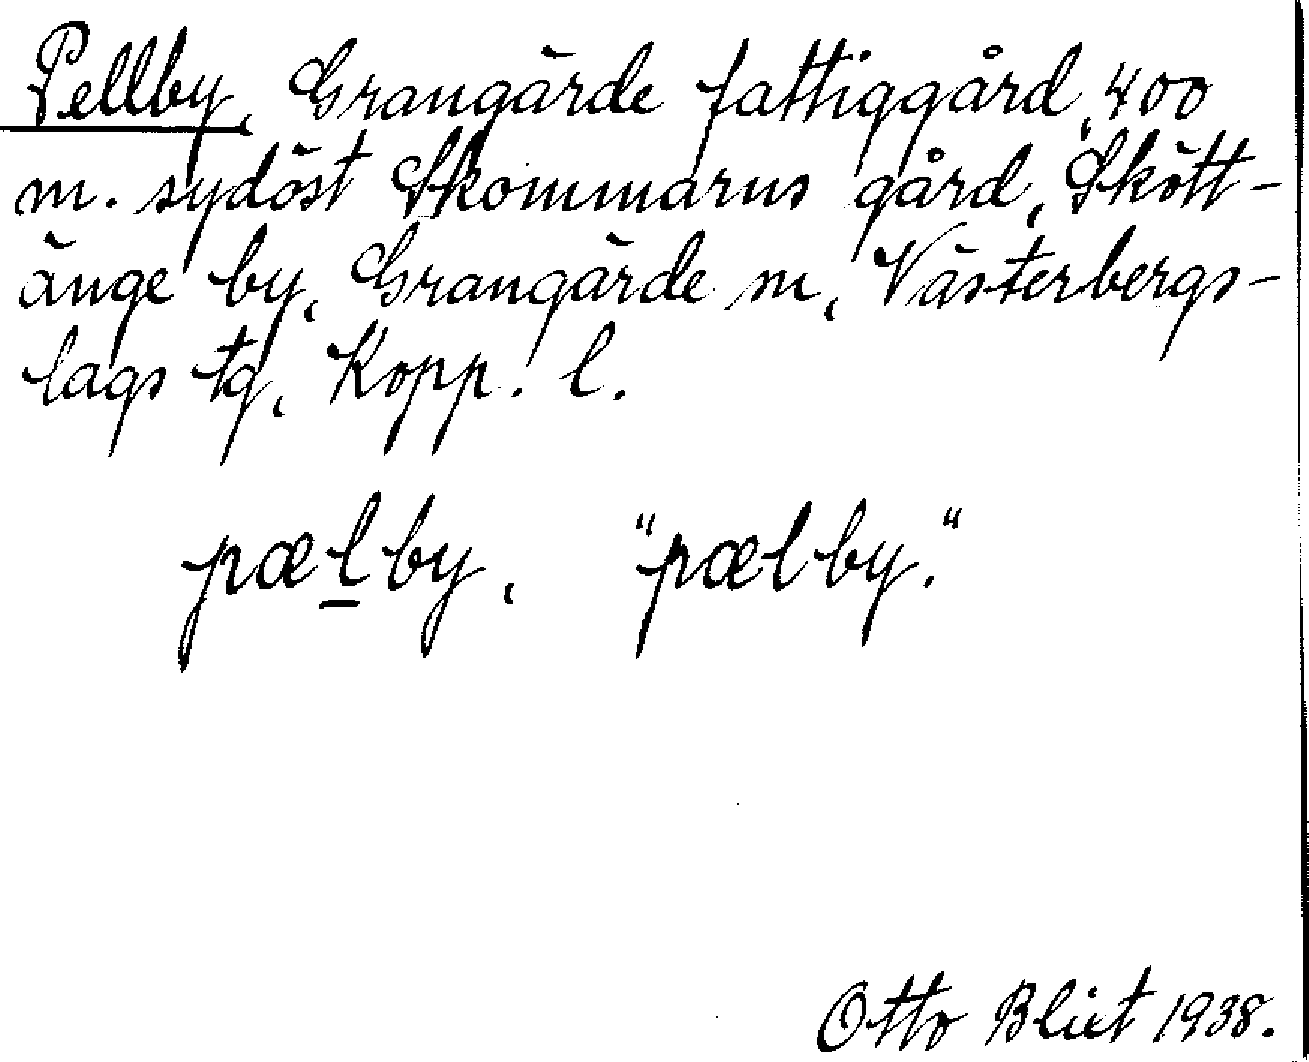 Pellby, Grangärde fattiggård, 400
m. sydöst Skommarus gård, Skött-
änge by, Grangärde sn, Västerbergs-
lags tg, Kopp. l.
pælby, "pælby."
Otto Blixt 1938.